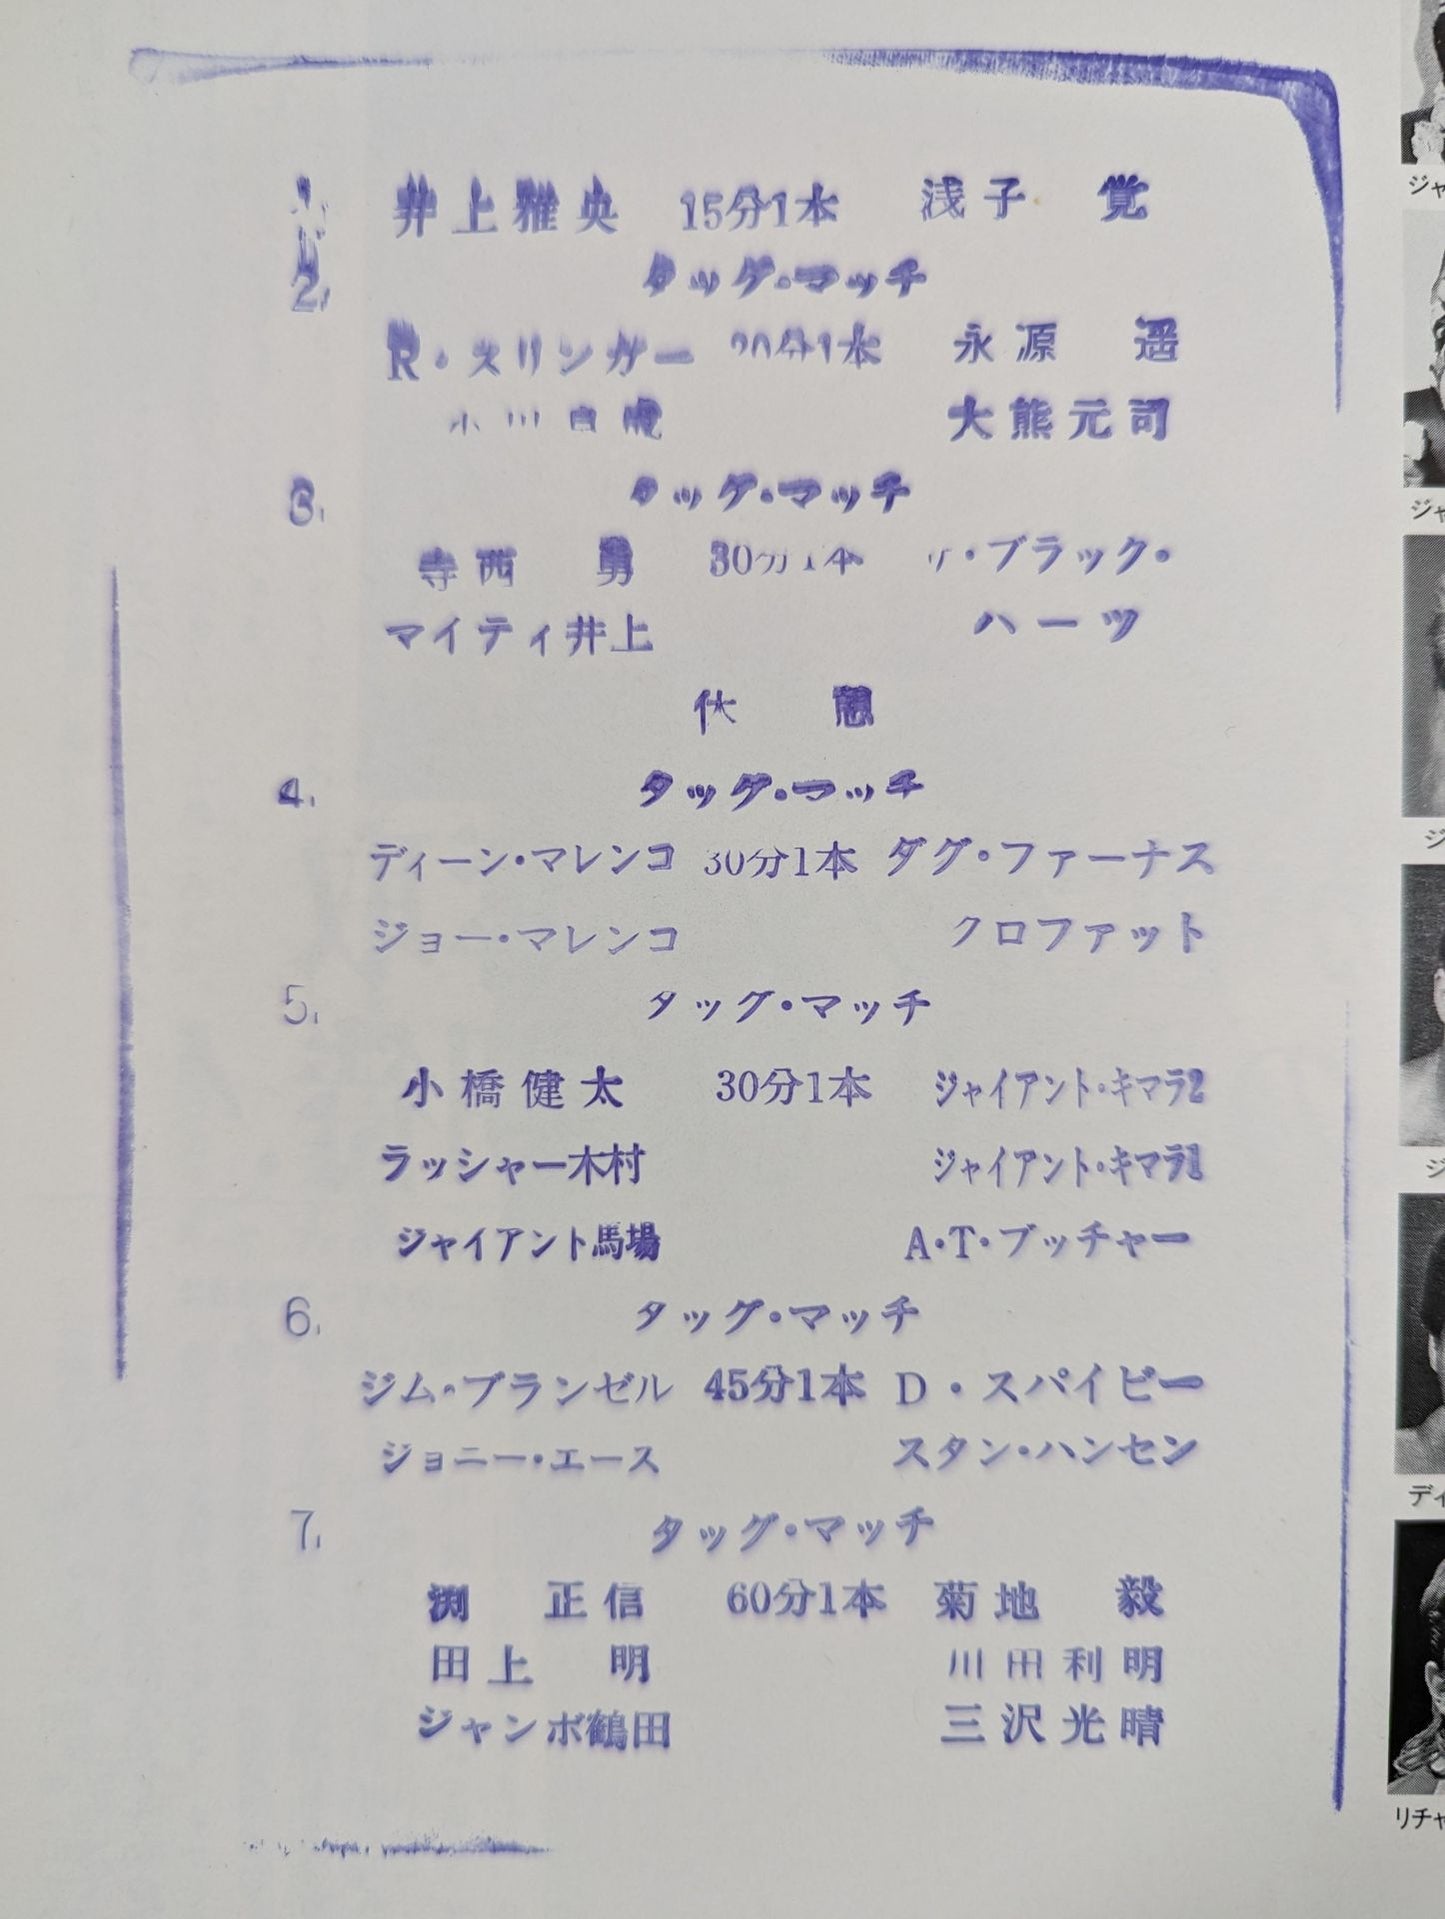 1. 井上雅央 15分1本 浅子 覚
2. タッグ・マッチ
R・スリンガー 20分1本 永源 遥
小川良成 大熊元司
3. タッグ・マッチ
寺西 勇 30分1本 ザ・ブラック・
マイティ井上 ハーツ
休 憩
4. タッグ・マッチ
ディーン・マレンコ 30分1本 ダグ・ファーナス
ジョー・マレンコ クロファット
5. タッグ・マッチ
小橋健太 30分1本 ジャイアント・キマラ2
ラッシャー木村 ジャイアント・キマラ1
ジャイアント馬場 A・T・ブッチャー
6. タッグ・マッチ
ジム・ブランゼル 45分1本 D・スパイビー
ジョニー・エース スタン・ハンセン
7. タッグ・マッチ
渕 正信 60分1本 菊地 毅
田上 明 川田利明
ジャンボ鶴田 三沢光晴
ジャ
ジャ
ジ
ジ
ディ
リチャ